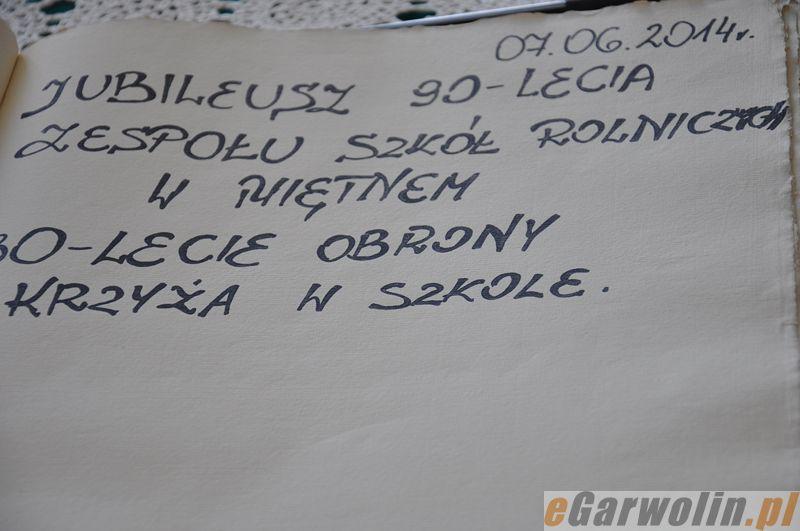 07.06.2014r.
JUBILEUSZ 90-LECIA
ZESPOŁU SZKÓŁ ROLNICZYCH
W MIĘTNEM
30-LECIE OBRONY
KRZYŻA W SZKOLE.
eGarwolin.pl